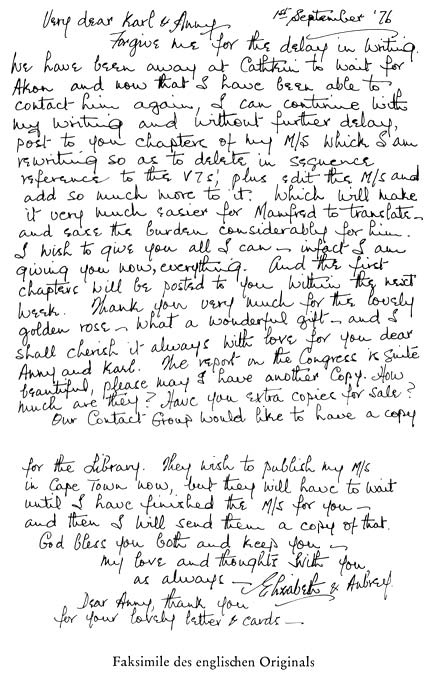 Very dear Karl & Anny, 1st September '76
Forgive me for the delay in writing.
We have been away at Cathkin to wait for
Akon and now that I have been able to
contact him again, I can continue with
my writing and without further delay,
post to you chapters of my M/s which I am
rewriting so as to delete in sequence
reference to the V7s', plus edit the M/s and
add so much more to it. Which will make
it very much easier for Manfred to translate –
and ease the burden considerably for him.
I wish to give you all I can – infact I am
giving you now, everything. And the first
chapters will be posted to you within the next
week. Thank you very much for the lovely
golden rose – what a wonderful gift – and I
shall cherish it always with love for you dear
Anny and Karl. The report on the Congress is quite
beautiful, please may I have another Copy. How
much are they? Have you extra copies for sale?
Our Contact Group would like to have a copy
for the Library. They wish to publish my M/s
in Cape Town now, but they will have to wait
until I have finished the M/s for you –
and then I will send them a copy of that.
God bless you both and keep you –
my love and thoughts with you
as always – Elizabeth & Aubrey.
Dear Anny, thank you
for your lovely letter & cards –
Faksimile des englischen Originals